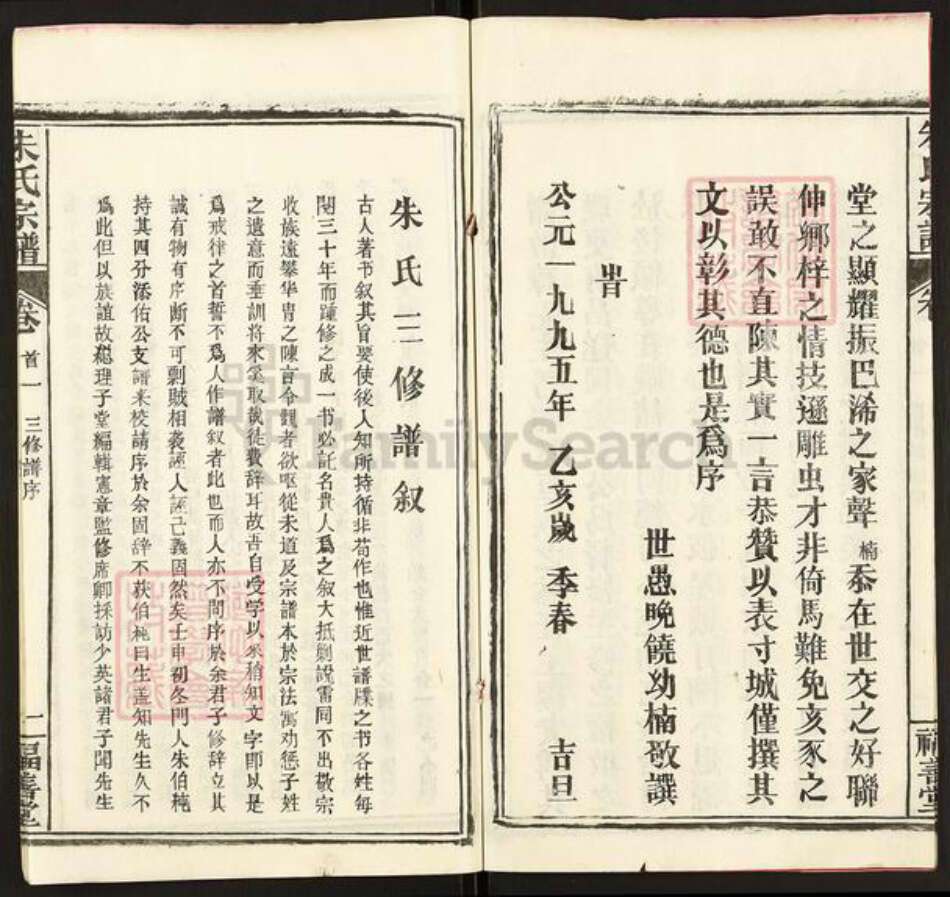 堂之顯耀振巴浠之家聲楠忝在世交之好聯
伸鄉梓之情技遜雕虫才非倚馬難免亥豕之
誤敢不直陳其實一言恭贊以表寸城僅撰其
文以彰其德也是爲序
世愚晚饒幼楠敬譔
旹
公元一九九五年 乙亥嵗 季春 吉旦
朱氏三修譜叙
古人著书叙其旨要使後人知所持循非苟作也惟近世譜牒之书各姓每
閱三十年而踵修之成一书必託名貴人爲之叙大抵剿說雷同不出敬宗
收族遠攀华冑之陳言令觀者欲嘔從未道及宗譜本於宗法寓劝惩子姓
之遺意而垂訓將來奚取哉徒費辞耳故吾自受学以來稍知文字卽以是
爲戒律之首誓不爲人作譜叙者此也而人亦不問序於余君子修辞立其
誠有物有序断不可剽賊相袭誣人誣己義固然矣壬申初冬門人朱伯桅
持其四分添佑公支譜来校請序於余固辞不获伯桅曰生盖知先生久不
爲此但以族誼故總理子堂編輯憲章監修席卿採訪少英諸君子闻先生
朱氏宗譜
卷首一 三修譜序
一福善堂
FamilySearch